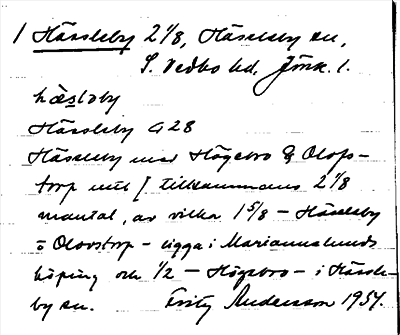 1 Hässleby 2 1/8, Hässleby sn,
S. Vedbo hd, Jönk. l.
hæsləby
Hässleby G 28
Hässleby med Högebro & Olofs-
torp utl [ tillsammans 2 1/8
mantal, av vilka 1 5/8 – Hässleby
o Olovstorp – ligga i Mariannelunds
köping och 1/2 – Högebro – i Hässle-
by sn. Fritz Andersson 1954.